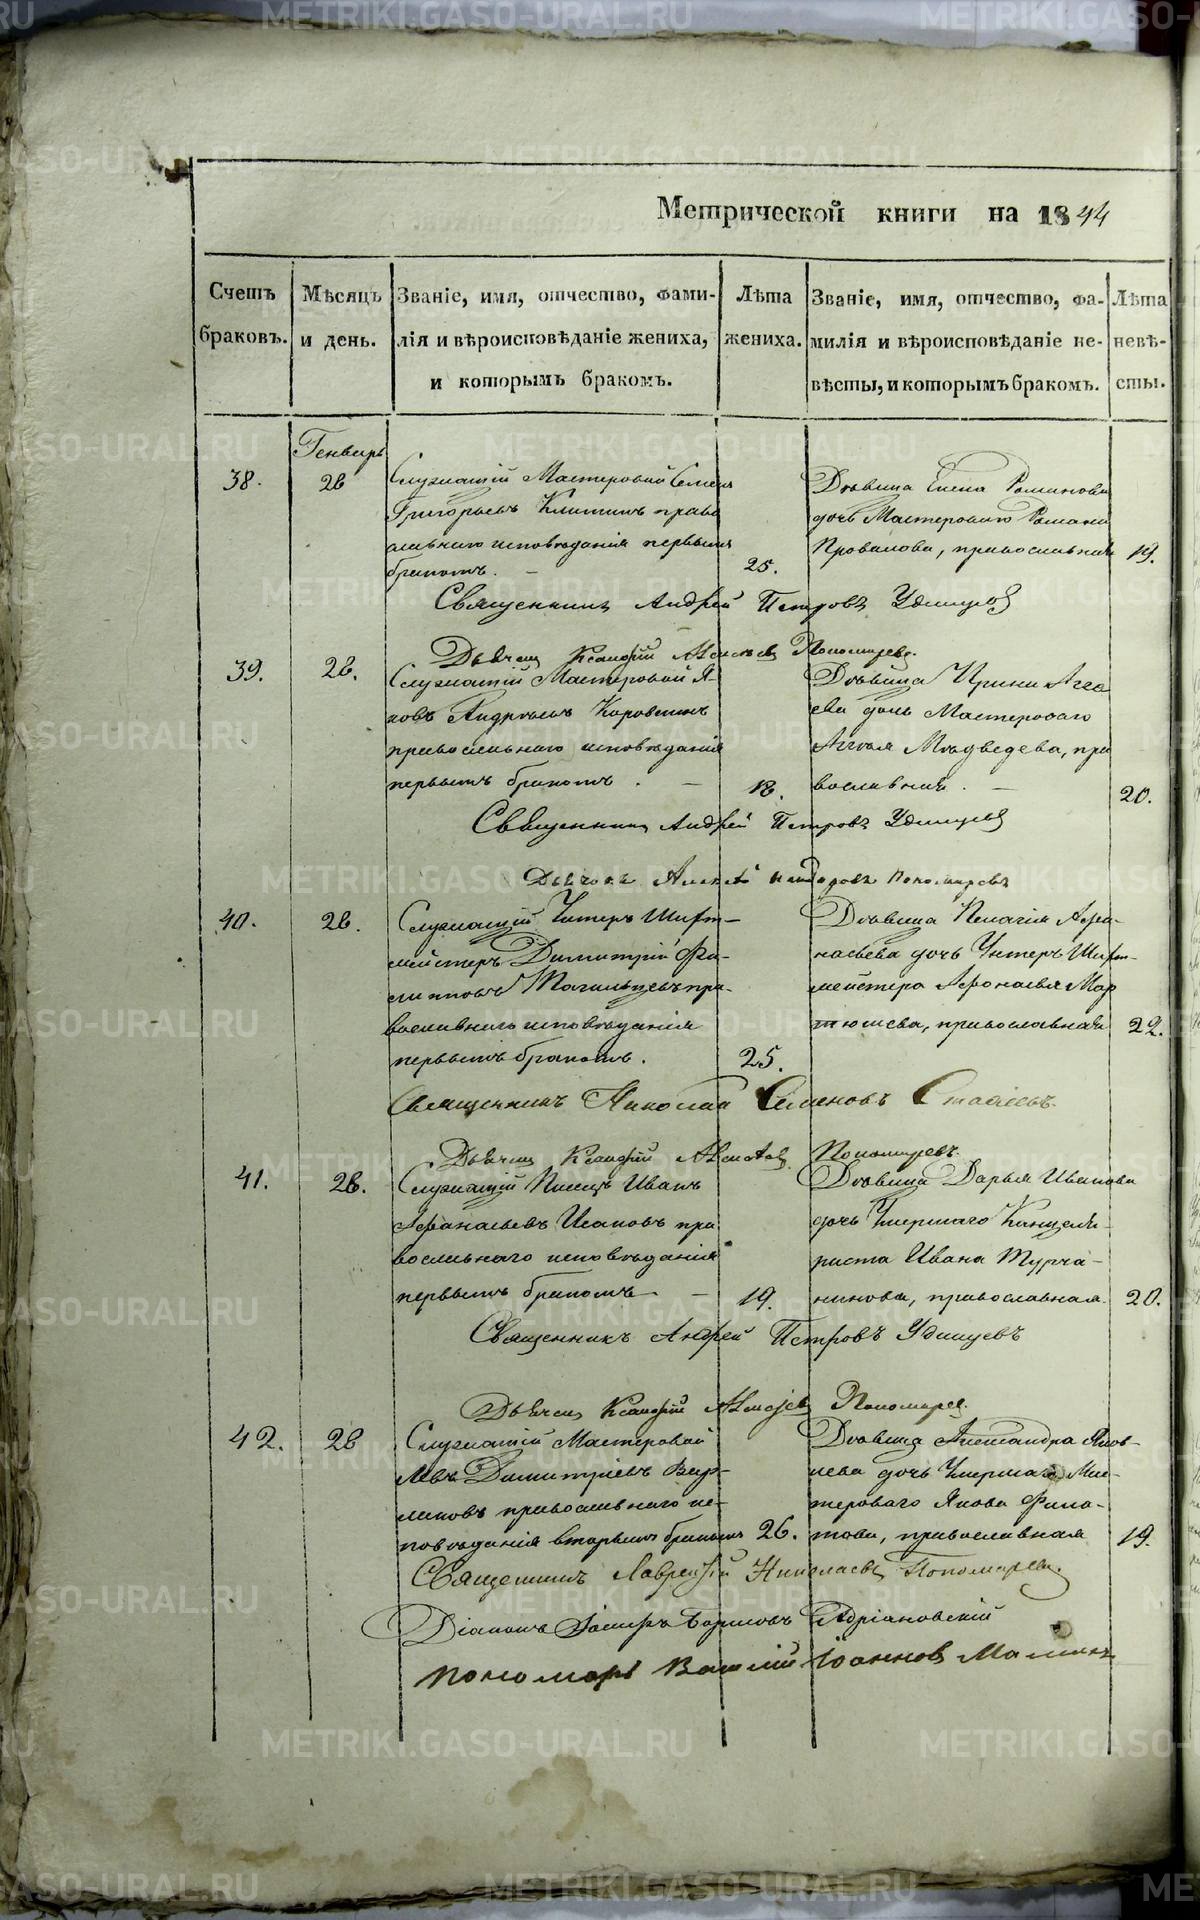 Метрической книги на 1844
Счетъ браковъ.
Мѣсяцъ и день.
Званіе, имя, отчество, фами-
лія и вѣроисповѣданіе жениха,
и которымъ бракомъ.
Лѣта жениха.
Званіе, имя, отчество, фа-
милія и вѣроисповѣданіе не-
вѣсты, и которымъ бракомъ.
Лѣта невѣ-
сты.
Генварь
38.
28
Служащій Мастеровой Семенъ
Григорьевъ право
славнаго исповѣданія первымъ
бракомъ. —
25.
Дѣвица Елена Романова
дочь Мастероваго Романа
Провалова, православная
19.
Священникъ Андрей Петровъ Удинцов
Дьячекъ Пономарев.
39.
28.
Служащій Мастеровой Я-
ковъ Андреевъ Коровинъ
православнаго исповѣданія
первымъ бракомъ. —
18.
Дѣвица Ирина Агге
ева дочь Мастероваго
Аггея Мѣдведева, пра
вославная. —
20.
Священникъ Андрей Петровъ Удинцов
Дьячокъ Пономаревъ
40.
28.
Служащій Унтеръ Шихт-
мейстеръ Димитрій Фи-
липповъ Тагильцевъ пра-
вославнаго исповѣданія
первымъ бракомъ.
25.
Дѣвица Пелагія Афа-
насьева дочь Унтеръ Шихт-
мейстера Афонасья Мар
тюшева, православная
22.
Священникъ Николай Семеновъ
Дьячекъ Пономаревъ.
41.
28.
Служащій Писецъ Иванъ
Афанасьевъ Исаковъ пра
вославнаго исповѣданія
первымъ бракомъ —
19.
Дѣвица Дарья Иванова
дочь Умершаго Канцеля-
риста Ивана Турча-
нинова, православная.
20.
Священникъ Андрей Петровъ Удинцевъ
Дьячекъ Пономарев.
42.
28
Служащій Мастеровой
Левъ Димитріевъ
православнаго ис-
повѣданія вторымъ бракомъ
26.
Дѣвица Александра Яков-
лева дочь Умершаго Мас-
тероваго Якова Фила-
това, православная
19.
Священникъ Лаврентій Николаевъ Пономаревъ.
Діаконъ Борисовъ Адріановскій
Пономарь Василий Іоаннов
METRIKI.GASO-URAL.RU